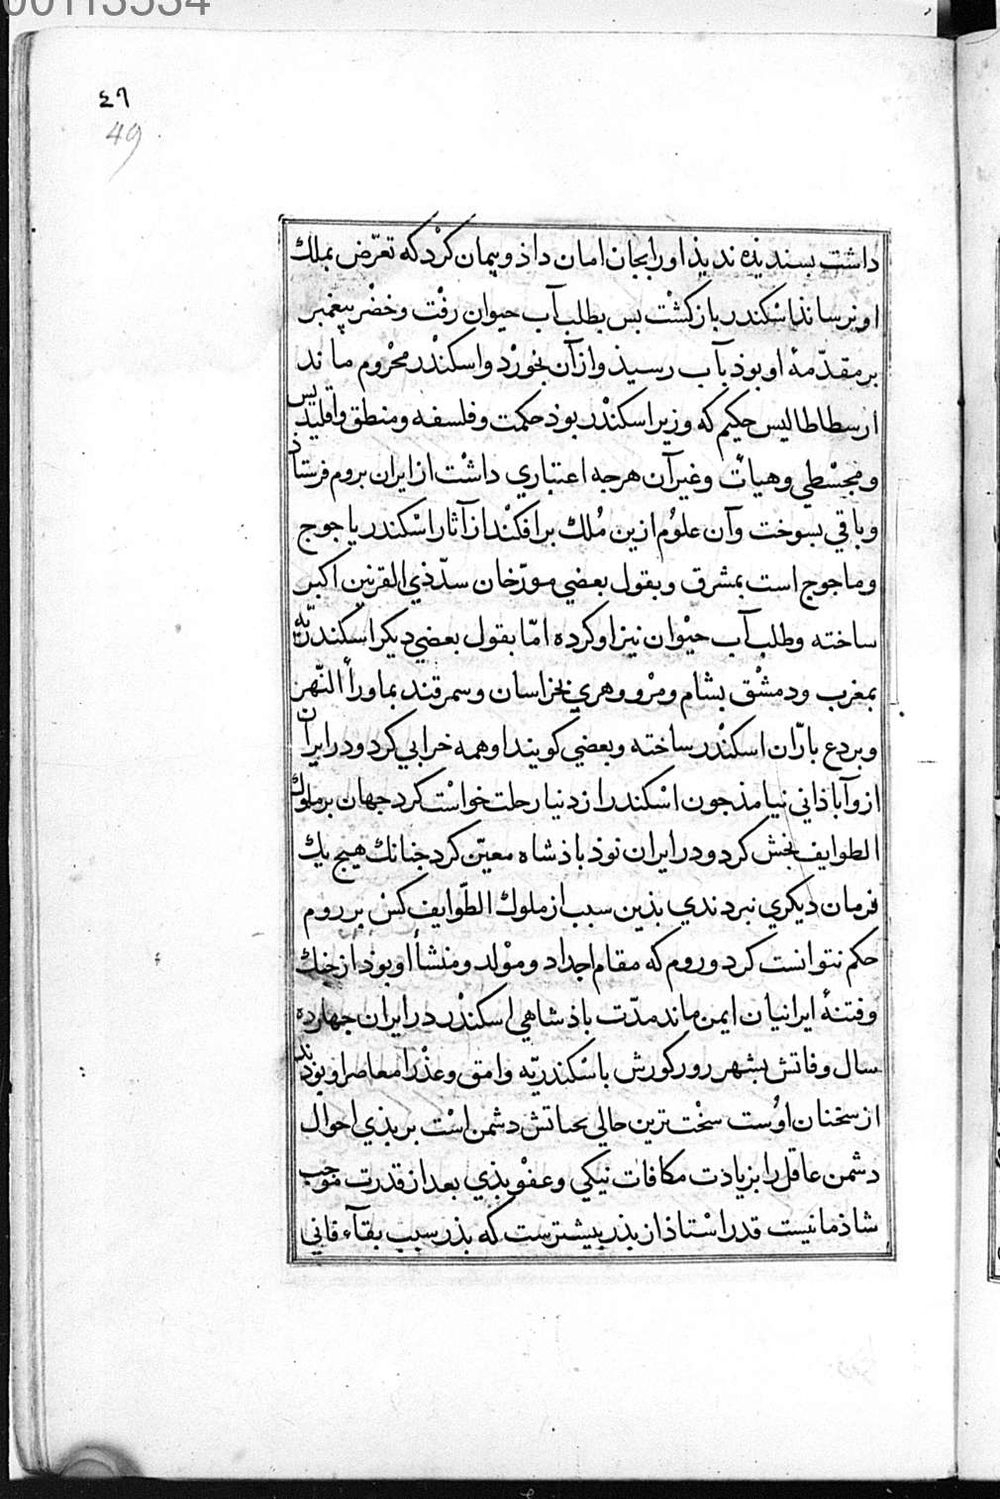 00113534
٤٩
49
داشت بسندیذه ندیذ اورا بجان امان داذ و پیمان کرد که تعرّض بملك
او نرساند اسکندر باز کشت بس بطلب آب حیوان رفت و خضر پیغمبر
بر مقدّمهٔ او بوذ بآب رسیذ و از آن بخورد و اسکندر محروم ماند
ارسطاطالیس حکیم که وزیر اسکندر بوذ حکمت و فلسفه و منطق و اقلیدیس
و مجسطي و هیأت و غیر آن هرجه اعتباري داشت از ایران بروم فرستاذ
و باقي بسوخت و آن علوم ازین ملك برافکند از آثار اسکندر یاجوج
و ماجوج است بمشرق و بقول بعضي مورّخان سدّ ذي القرنین اکبر
ساخته و طلب آب حیوان نیز او کرده امّا بقول بعضي دیکر اسکندریّه
بمغرب و دمشق بشام و مرو و هري بخراسان و سمرقند بماورأ النّهر
و بردع بارّان اسکندر ساخته و بعضي کویند او همه خرابي کرد و در ایران
ازو آباذاني نیامذ جون اسکندر از دنیا رحلت خواست کرد جهان بر ملوك
الطوایف بخش کرد و در ایران نوذ باذشاه معیّن کرد جنانك هیج یك
فرمان دیکري نبردندي بذین سبب از ملوك الطّوایف کس بر روم
حکم نتوانست کرد و روم که مقام اجداد و مولد و منشأ او بوذ از جنك
و فتنهٔ ایرانیان ایمن ماند مدّت باذشاهي اسکندر در ایران جهارده
سال وفاتش بشهر رورکورش باسکندریّه وامق و عذرا معاصر او بوذند
از سخنان اوست سخت ترین حالي بحیاتش دشمن است بر بذي احوال
دشمن عاقل را بزیادت مکافات نیکي و عفو بذي بعد از قدرت موجب
شاذمانیست قدر استاذ از بذر بیشترست که بذر سبب بقآء فاني